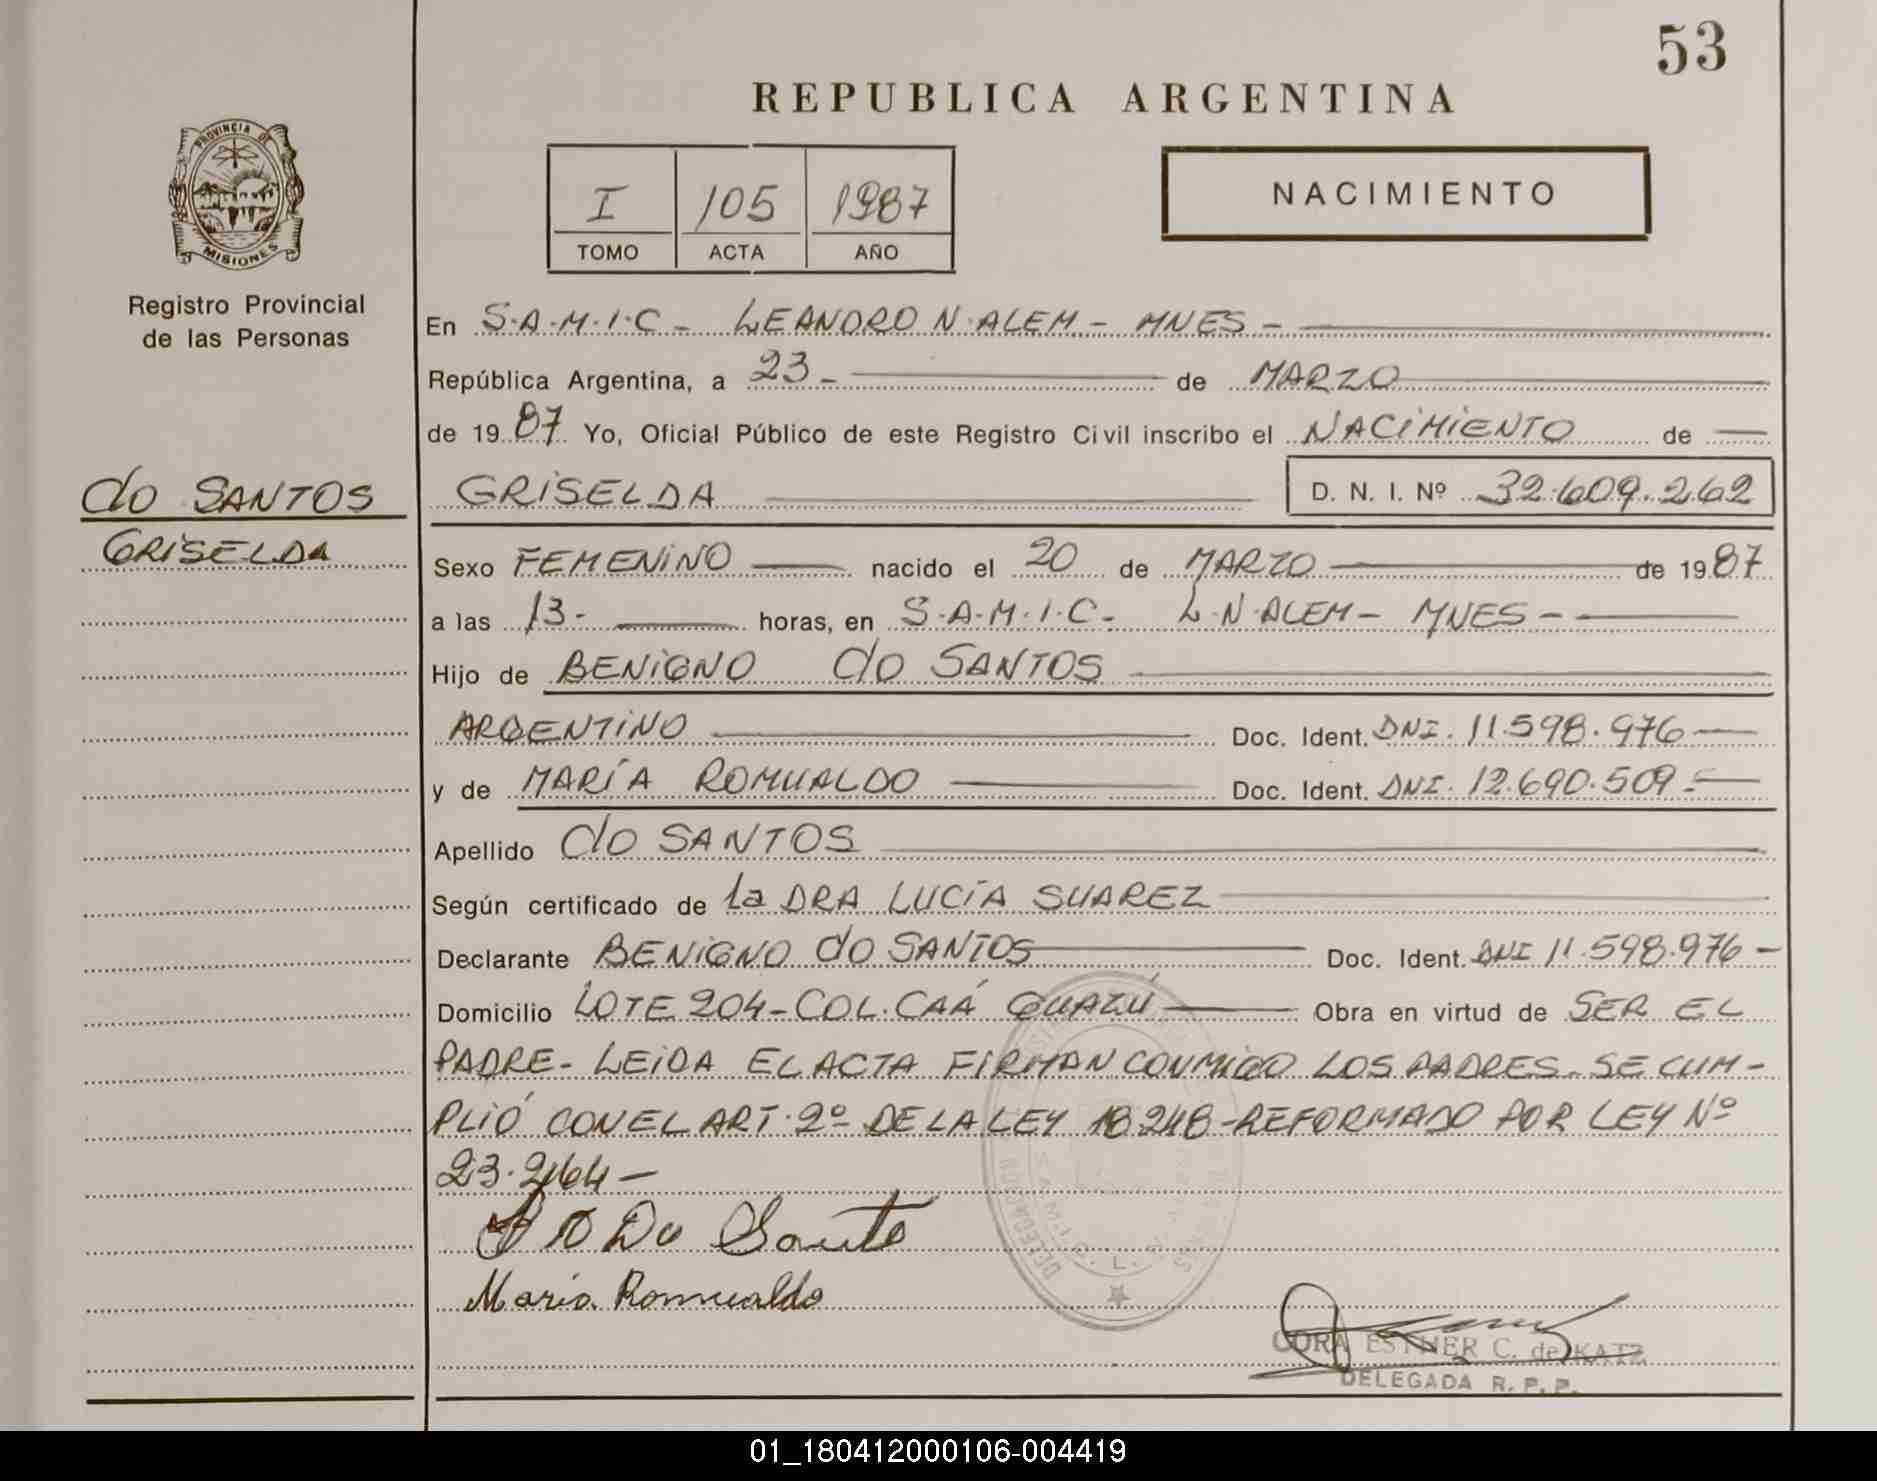 53
REPUBLICA ARGENTINA
PROVINCIA DE
MISIONES
Registro Provincial
de las Personas
I 105 1987
TOMO ACTA AÑO
NACIMIENTO
En S.A.M.I.C - LEANDRO N. ALEM - MNES -
República Argentina, a 23 - de MARZO
de 1987 Yo, Oficial Público de este Registro Civil inscribo el NACIMIENTO de
do SANTOS
GRISELDA
GRISELDA D. N. I. Nº 32.609.262
Sexo FEMENINO nacido el 20 de MARZO de 1987
a las 13- horas, en S.A.M.I.C- L.N.ALEM - MNES -
Hijo de BENIGNO do SANTOS
ARGENTINO Doc. Ident. DNI. 11.598.976
y de MARÍA ROMUALDO Doc. Ident. DNI. 12.690.509 -
Apellido do SANTOS
Según certificado de la DRA LUCÍA SUAREZ
Declarante BENIGNO do SANTOS Doc. Ident. DNI 11.598.976 -
Domicilio LOTE 204 - COL. CAÁ GUAZÚ Obra en virtud de SER EL
PADRE - LEIDA EL ACTA FIRMAN CONMIGO LOS PADRES. SE CUM-
PLIÓ CON EL ART. 2º DE LA LEY 18248 - REFORMADO POR LEY Nº
23.264 -
Do Santo
María Romualdo
CORA ESTHER C. de KATZ
DELEGADA R. P. P.
01_180412000106-004419